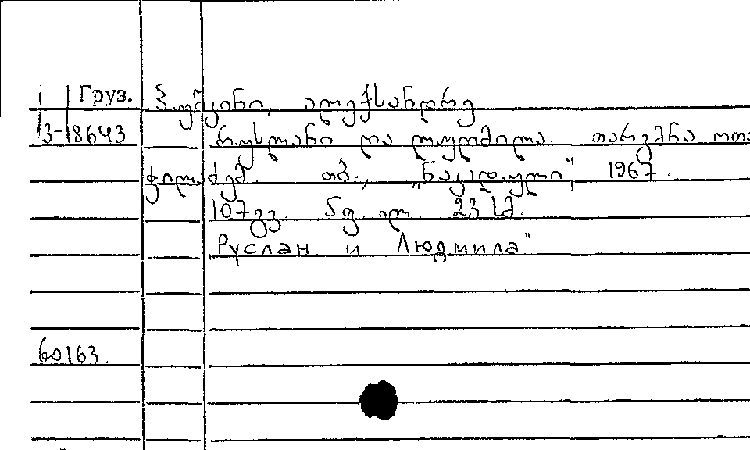 Груз. პუშკინი, ალექსანდრე
3-18643 რუსლანი და ლუდმილა. თარგმნა ოთ.
ჭილაძემ. თბ., „ნაკადული“, 1967.
107 გვ. 5 ფ. ილ. 23 სმ.
Руслан и Людмила"
60163.